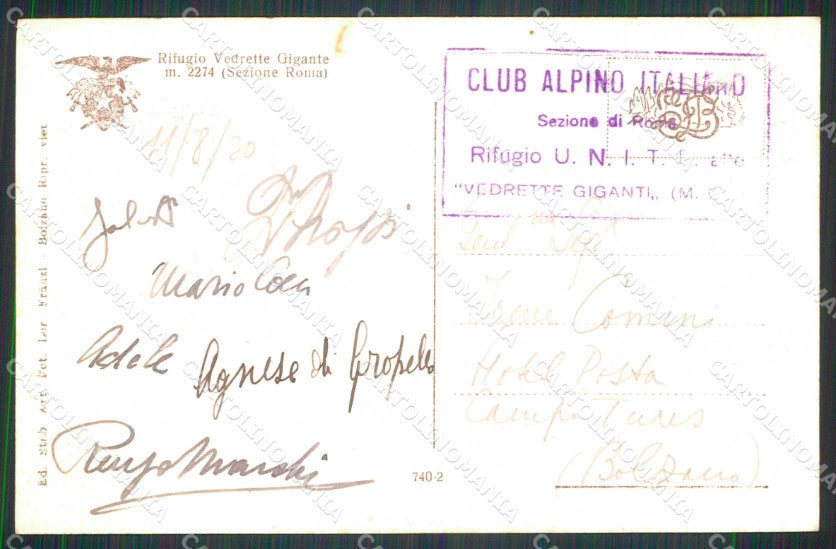 Rifugio Vedrette Gigante
m. 2274 (Sezione Roma)
CLUB ALPINO ITALIANO
Sezione di Roma
Rifugio U. N. I. T. I.
"VEDRETTE GIGANTI„ (M.
11/8/20
Saluti
Rossi
Mario
Adele Agnese di Gropello
Renzo Marchi
Irene Comini
Hotel Posta
Campo Tures
(Bolzano)
740-2
Ed. Stab. Art. Fot. Lor. Fränzl - Bolzano Ripr. viet
CARTOLINOMANIA